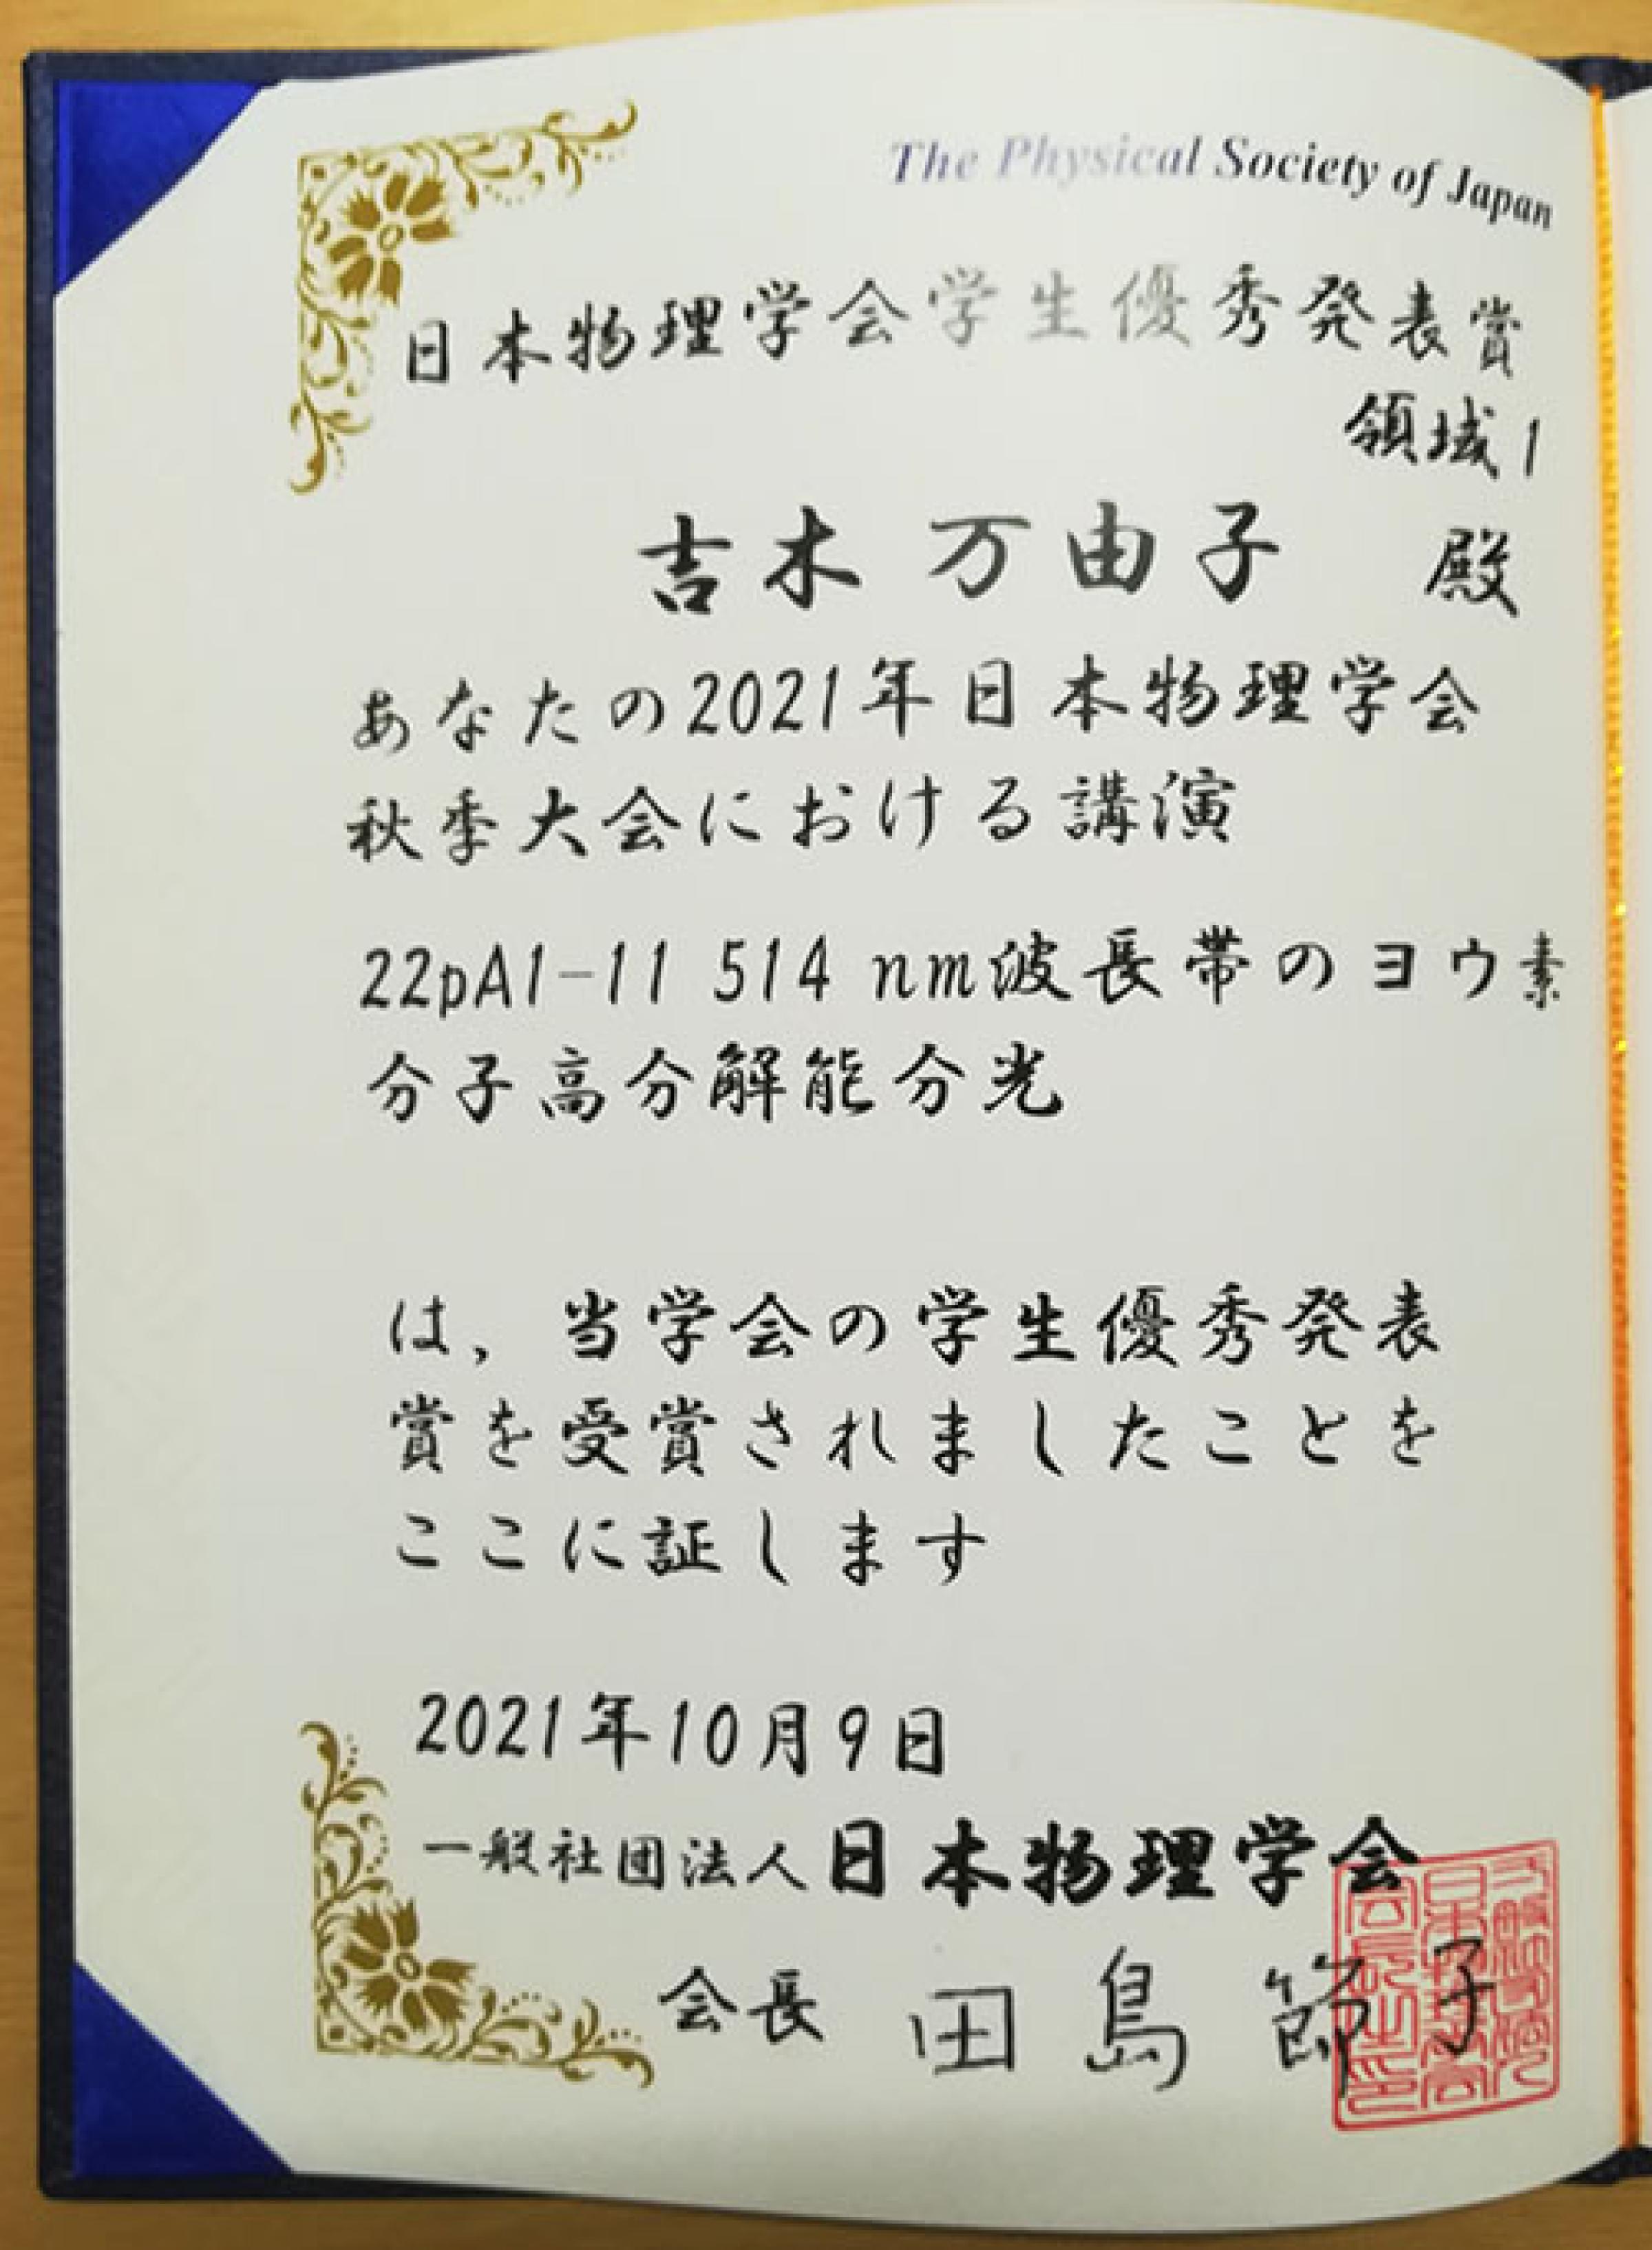 The Physical Society of Japan
日本物理学会学生優秀発表賞
領域1
吉木 万由子 殿
あなたの2021年日本物理学会
秋季大会における講演
22pA1-11 514 nm波長帯のヨウ素
分子高分解能分光
は，当学会の学生優秀発表
賞を受賞されましたことを
ここに証します
2021年10月9日
一般社団法人日本物理学会
会長 田島 節子